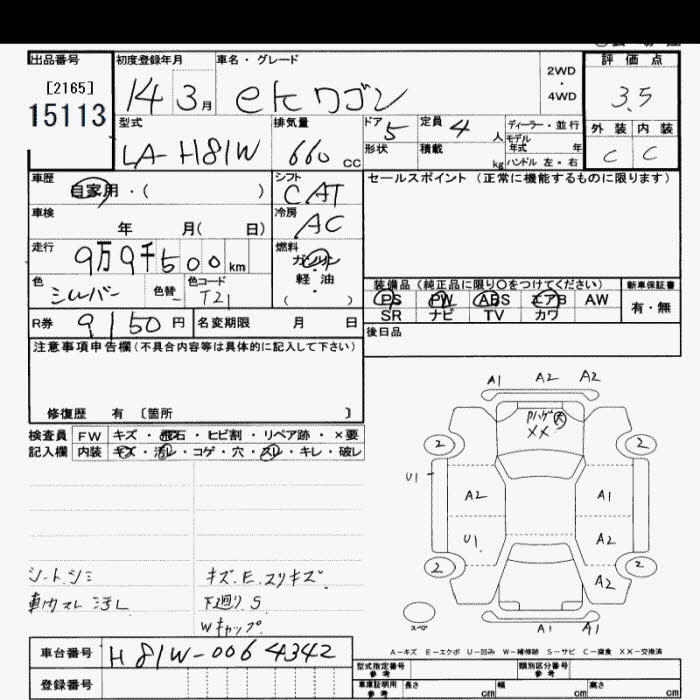 出品番号 初度登録年月 車名・グレード 2WD・4WD 評価点
[2165]
15113
14 3月 ekワゴン 3.5
型式 排気量 ドア 5 定員 4人 ディーラー・並行 外装 内装
LA-H81W 660cc 形状 積載 kg モデル年式 年 ハンドル 左・右 C C
車歴 自家用・( ) シフト CAT セールスポイント(正常に機能するものに限ります)
車検 年 月( 日) 冷房 AC
走行 9万9千500km 燃料 ガソリン・軽油・( )
色 シルバー 色替 色コード T21
装備品(純正品に限り○をつけてください) 新車保証書
PS PW ABS エアB AW 有・無
SR ナビ TV カワ
R券 9150円 名変期限 月 日 後日品
注意事項申告欄(不具合内容等は具体的に記入して下さい)
修復歴 有 〔箇所 〕
検査員記入欄
FW キズ・飛石・ヒビ割・リペア跡・×要
内装 キズ・汚レ・コゲ・穴・スレ・キレ・破レ
シートシミ キズ.E.スリキズ
車内スレ 汚レ 下廻り S
Wキャップ
A1 A2 A2
Pハゲ 大
XX
2 2
U1
A2 A1
U1. A2
2 2
A2
A1 A1
スペア
A-キズ E-エクボ U-凹み W-補修跡 S-サビ C-腐食 XX-交換済
車台番号 H81W-0064342
登録番号
型式指定番号 参考 類別区分番号 参考
車庫証明用 参考 長さ cm 幅 cm 高さ cm